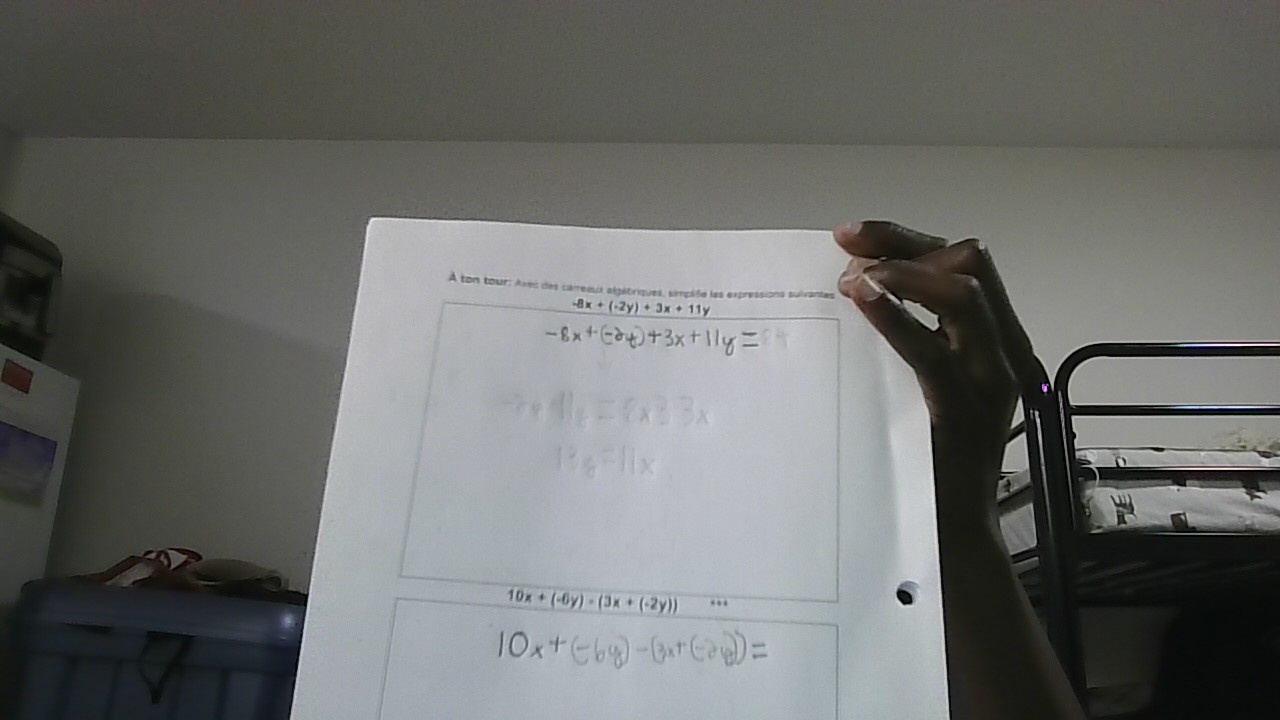 À ton tour: Avec des carreaux algébriques, simplifie les expressions suivantes
-8x + (-2y) + 3x + 11y
-8x+(-2y)+3x+11y=
13y=11x
10x + (-6y) - (3x + (-2y)) ***
10x+(-6y)-(3x+(-2y))=